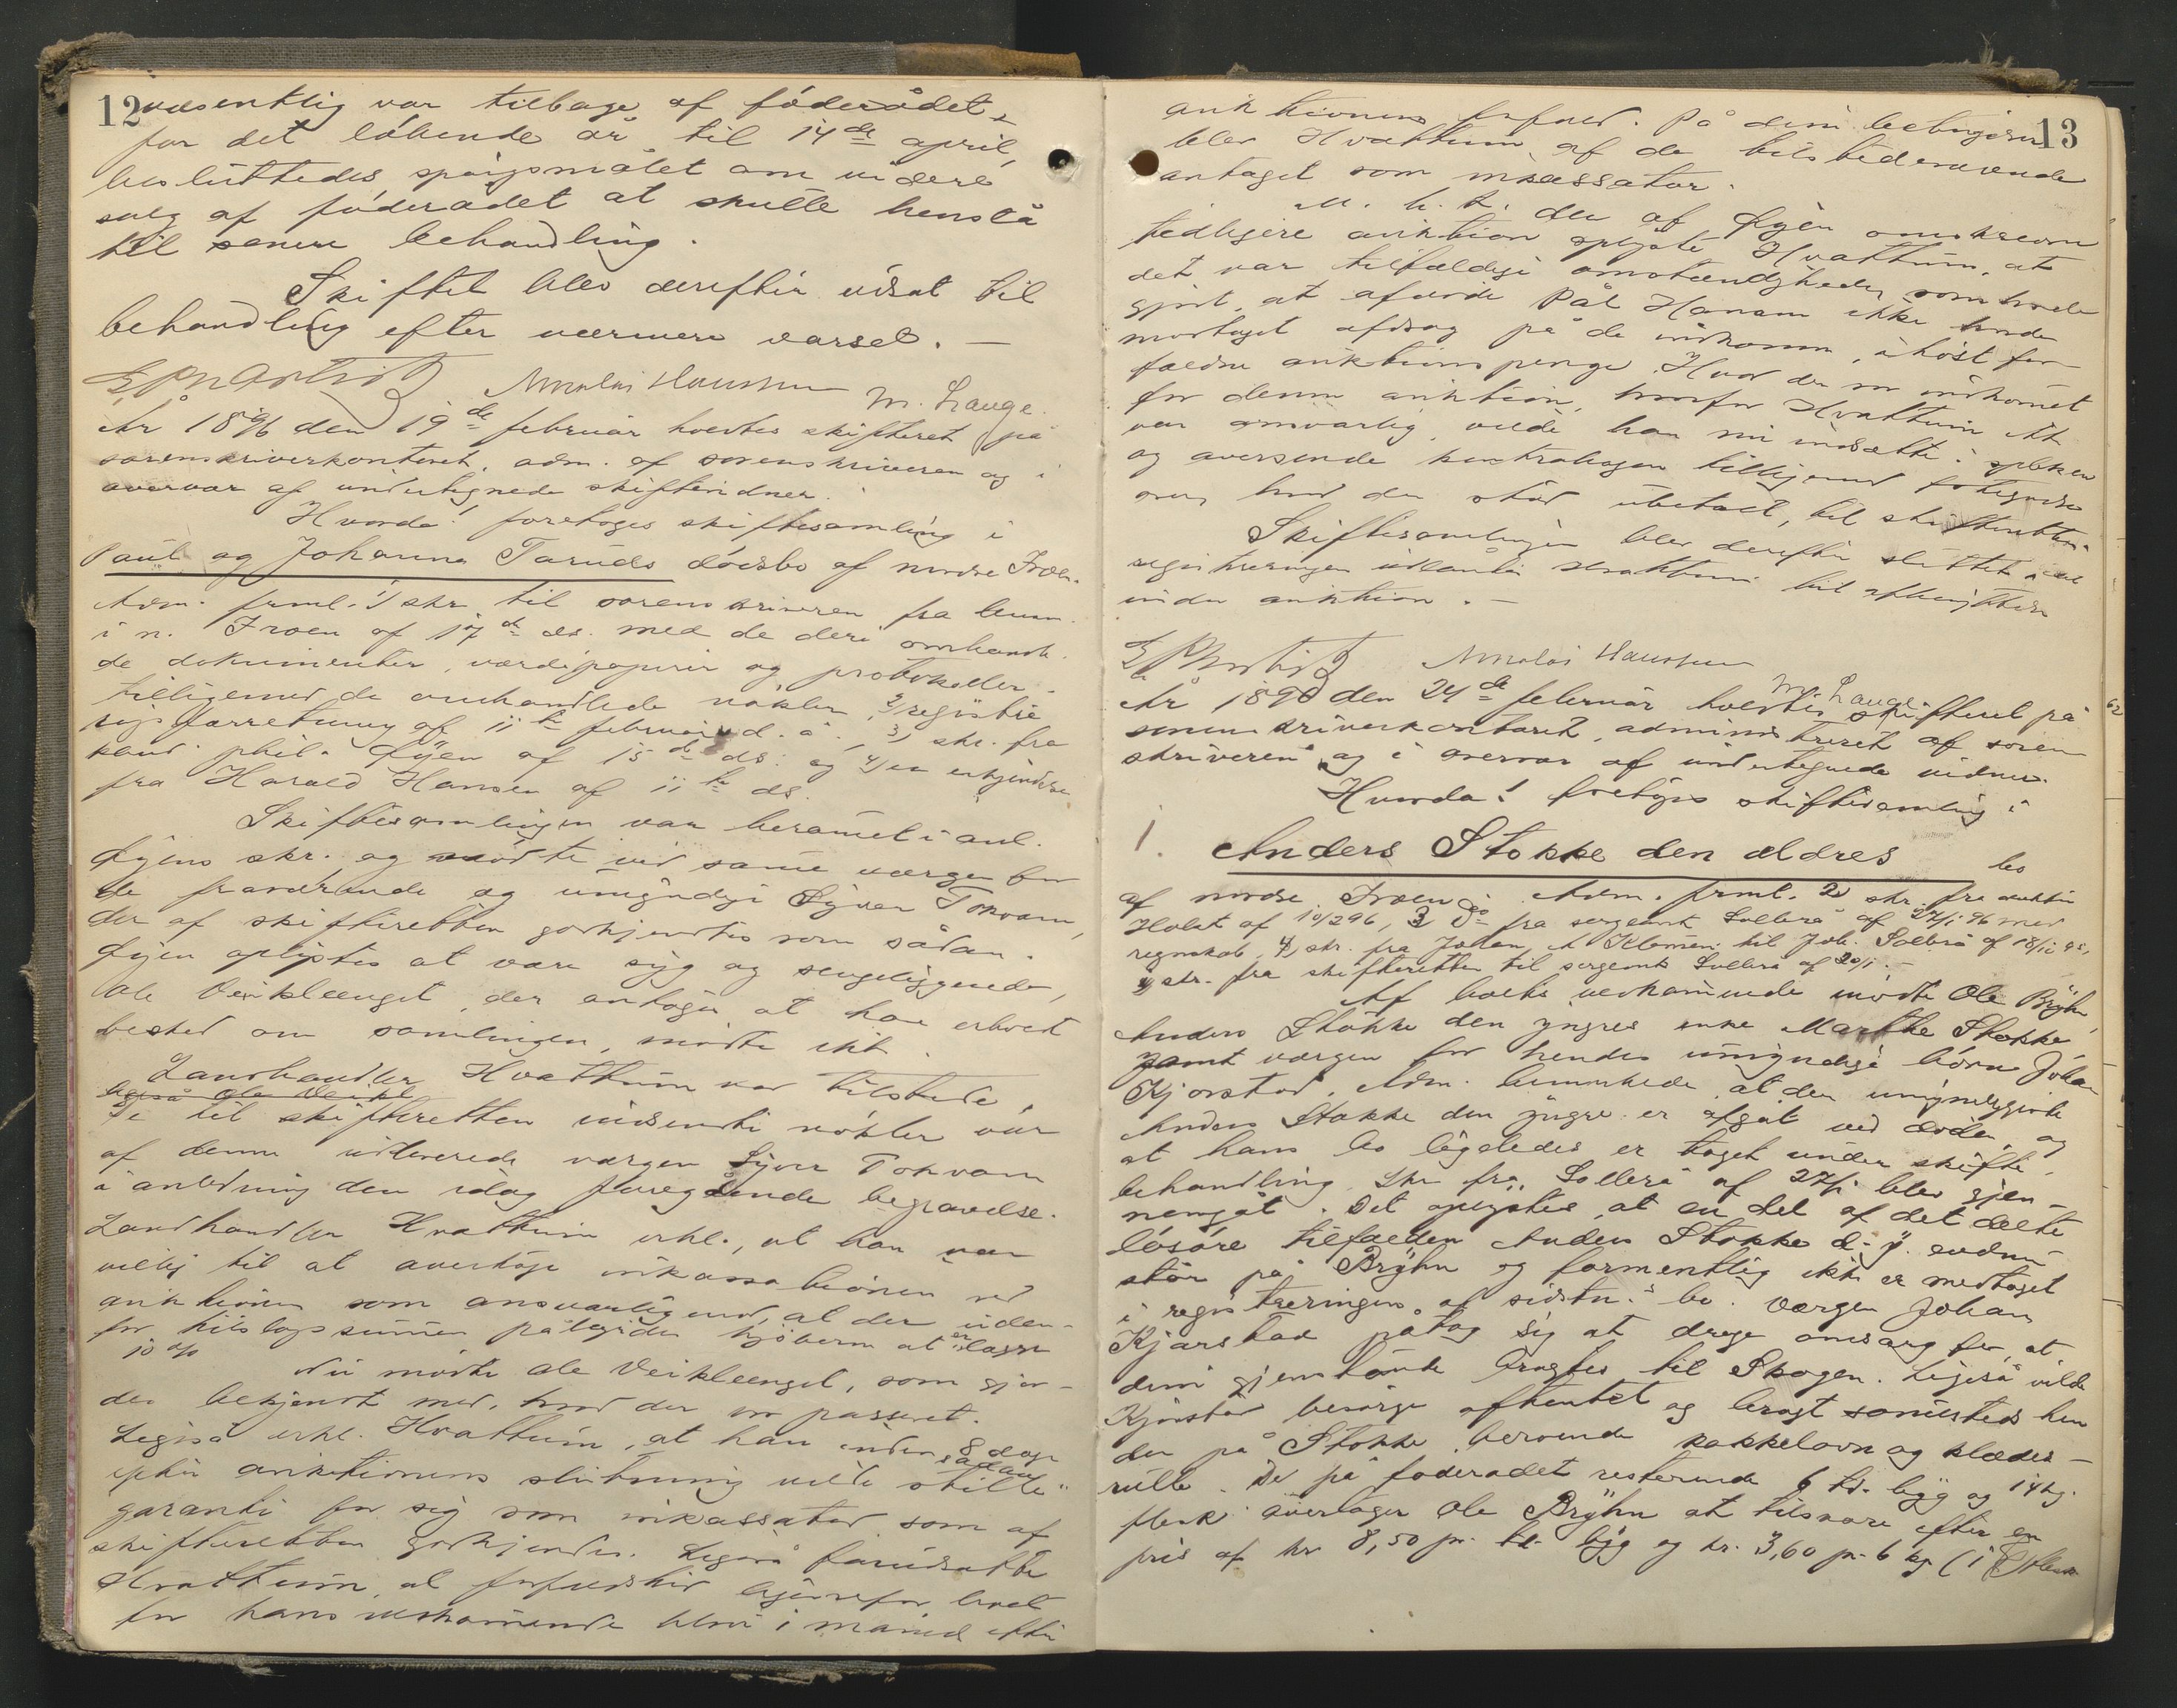 12
væsentlig var tilbage af föderådet
for det löbende år til 14de april,
besluttedes spörgsmålet om videre
salg af föderådet at skulle henstå
til senere behandling.
Skiftet blev derefter udsat til
behandling efter nærmere varsel. —
Nikolai Hanssen M. Lange.
År 1896 den 19de februar holdtes skifteret på
sorenskriverkontoret, adm. af sorenskriveren og i
overvær af undertegnede skiftevidner.
Hvorda! foretoges skiftesamling i
Paul og Johanna Taruds dödsbo af nordre Froen.
Adm. freml. 1 skr. til sorenskriveren fra lensm.
i n. Froen af 17de ds. med de deri omhandl.
de dokumenter, værdipapirer og protokoller
tilligemed de omhandlede nökler, 2) registre
rings forretning af 11te februar d. å. 3) skr. fra
kand. phil. Öyen af 15de ds. og 4) en erkjendelse
fra Harald Hansen af 11te ds.
Skiftesamlingen var berammet i anl.
Öyens skr. og mödte ved samme værgen for
de fraværende og umyndige Syver Tokvam,
der af skifteretten godkjendtes som sådan.
Öyen oplystes at være syg og sengeliggende,
Ole Veikleenget, der antoges at have erholdt
besked om samlingen, mödte ikke.
Landhandler Hvattum var tilstede,
også Ole Veikl
De til skifteretten indsendte nökler var
af denne udleverede værgen Syver Tokvam
i anledning den idag foregående begravelse.
Landhandler Hvattum erkl., at han var
villig til at overtage inkassationen ved
auktionen som ansvarlig mod, at der uden-
for tilslagssummen pålægdes kjöberen at erlægge
10 %
Nu mödte Ole Veikleenget, som gjor-
des bekjendt med, hvad der var passeret.
Ligeså erkl. Hvattum, at han inden 8 dage
efter auktionens slutning vilde stille sådan
garanti for sig som inkassator som af
skifteretten godkjendes. Ligeså forudsatte
Hvattum, at forfaldstid
for hans vedkommende blev 1 måned efter
13
auktionens forfald. På disse betingelser
blev Hvattum af de tilstedeværende
antaget som inkassator.
M. h. t. den af Öyen omskrevne
tidligere auktion oplyste Hvattum, at
det var tilfældige omstændigheder som havde
gjort, at afdöde Pål ikke havde
modtaget afdrag på de indkomne, i höst for-
faldne auktionspenge. Hvad der var indkommet
for denne auktion, hvorfor Hvattum
var ansvarlig, vilde han nu indsætte i spbken
og oversende kontrabogen tilligemed fortegnelse
over, hvad der står ubetalt, til skifteretten.
Skiftesamlingen blev derefter sluttet
registreringen udlånt Hvattum til afbenyttelse
under auktion. —
Nikolai Hanssen
M. Lange
År 1896 den 24de februar holdtes skifteret på
sorenskriverkontoret, administreret af soren-
skriveren og i overvær af undertegnede vidner.
Hvorda! foretoges skiftesamling i
1. Anders Stokke den ældres bo
af nordre Froen. Adm. freml. 2 skr. fra
Holst af 10/2 96, 3) do fra sergeant Sollerå af 27/1 96 med
regnskab, 4) skr. fra Johan til Joh. Sollerå af 18/12 95,
5) skr. fra skifteretten til sergeant Sollerå af 20/1. —
Af boets vedkommende mödte Ole Bryhn,
Anders Stokke den yngres enke Marthe Stokke
samt værgen for hendes umyndige börn Johan
Kjorstad. Adm. bemærkede, at den umyndiggjorte
Anders Stokke den yngre er afgåt ved döden og
at hans bo ligeledes er taget under skifte-
behandling. Skr. fra Sollerå af 27/1 blev gjen-
nemgåt. Det oplystes, at en del af det delte
lösöre tilfalden Anders Stokke d. y. endnu
står på Bryhn og formentlig ikke er medtaget
i registreringen af sidstn.s bo. Værgen Johan
Kjorstad påtog sig at drage omsorg for, at
disse gjenstande bragtes til Skogen. Ligeså vilde
Kjorstad besörge afhentet og bragt sammesteds hen
den på Stokke beroende kakkelovn og klædes-
rulle. De på foderådet resterende 6 td. byg og 14 kg.
flesk overtager Ole Bryhn at tilsvare efter en
pris af kr. 8,50 pr. td. byg og kr. 3,60 pr. 6 kg (1